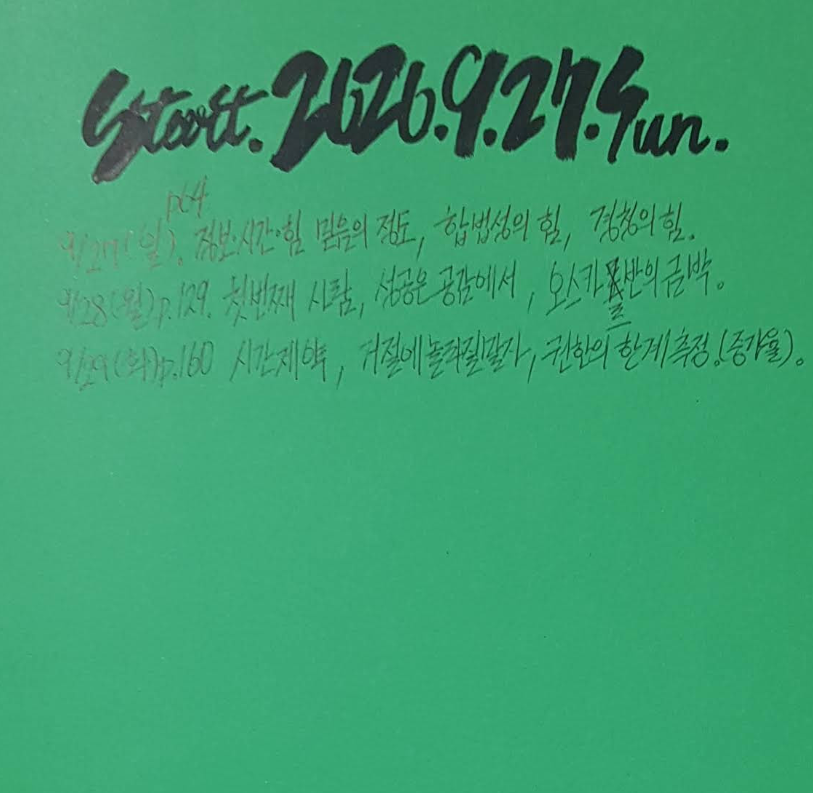 Start. 2026.9.27. Sun.
p64
9/27(일). 정보·시간·힘 믿음의 정도, 합법성의 힘, 경청의 힘.
9/28(월)p.129. 첫번째 사람, 성공은 공감에서, 오스카 반의 금박.
9/29(화)p.160 시간제약, 거절에 놀라질말자, 권한의 한계 측정.(증가율).